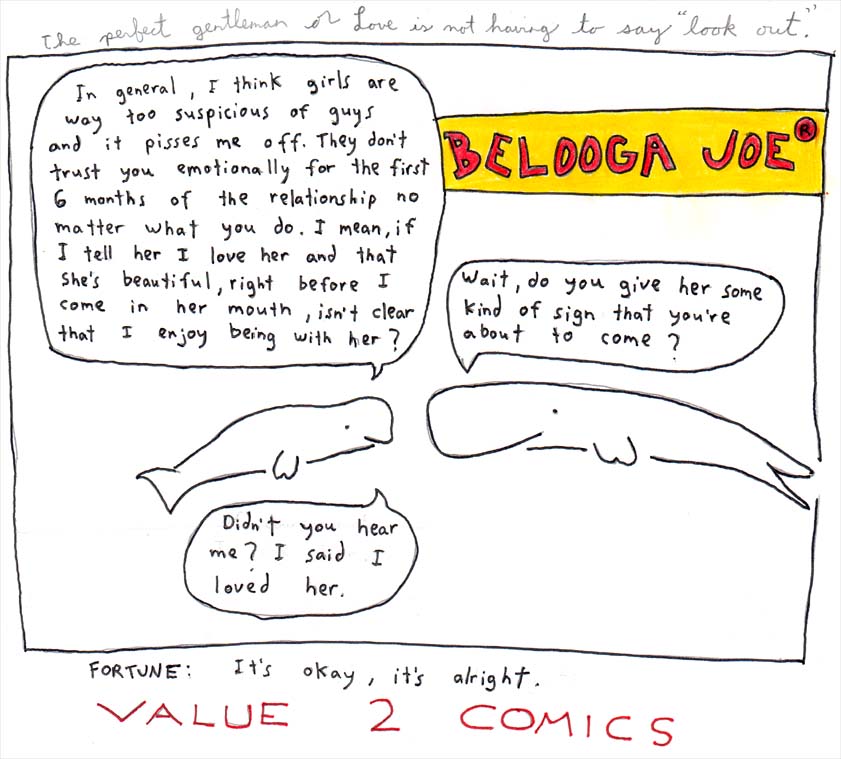 The perfect gentleman or Love is not having to say "look out."
In general, I think girls are
way too suspicious of guys
and it pisses me off. They don't
trust you emotionally for the first
6 months of the relationship no
matter what you do. I mean, if
I tell her I love her and that
she's beautiful, right before I
come in her mouth, isn't clear
that I enjoy being with her?
BELOOGA JOE®
Wait, do you give her some
kind of sign that you're
about to come?
Didn't you hear
me? I said I
loved her.
FORTUNE: It's okay, it's alright.
VALUE 2 COMICS